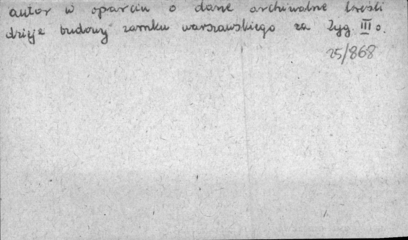 autor w oparciu o dane archiwalne kreśli
dzieje budowy zamku warszawskiego za Zyg III o.
25/868